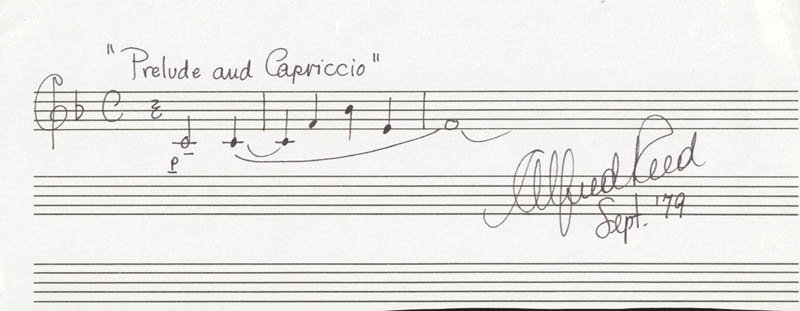 "Prelude and Capriccio"
p
Alfred Reed
Sept. '79